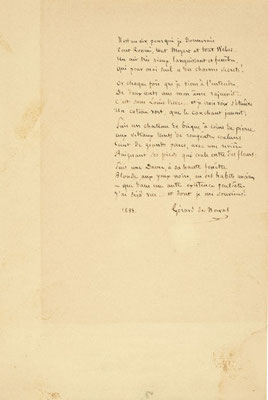 Il est un air pour qui je donnerais
Tout Rossini, tout Mozart et tout Weber,
Un air très vieux, languissant et funèbre
qui pour moi seul a des charmes secrets!
Or chaque fois que je viens à l'entendre
De deux cents ans mon âme rajeunit..
C'est sous Louis treize.. et je crois voir s'étendre
Un coteau vert, que le couchant jaunit,
Puis un château de brique à coins de pierre,
aux vitraux teints de rougeâtres couleurs
Ceint de grands parcs, avec une rivière
Baignant ses pieds qui coule entre des fleurs.
Puis une Dame, à sa haute fenêtre
Blonde aux yeux noirs, en ses habits anciens
– que dans une autre existence peut-être
J'ai déjà vue... et dont je me souviens!
Gérard de Nerval